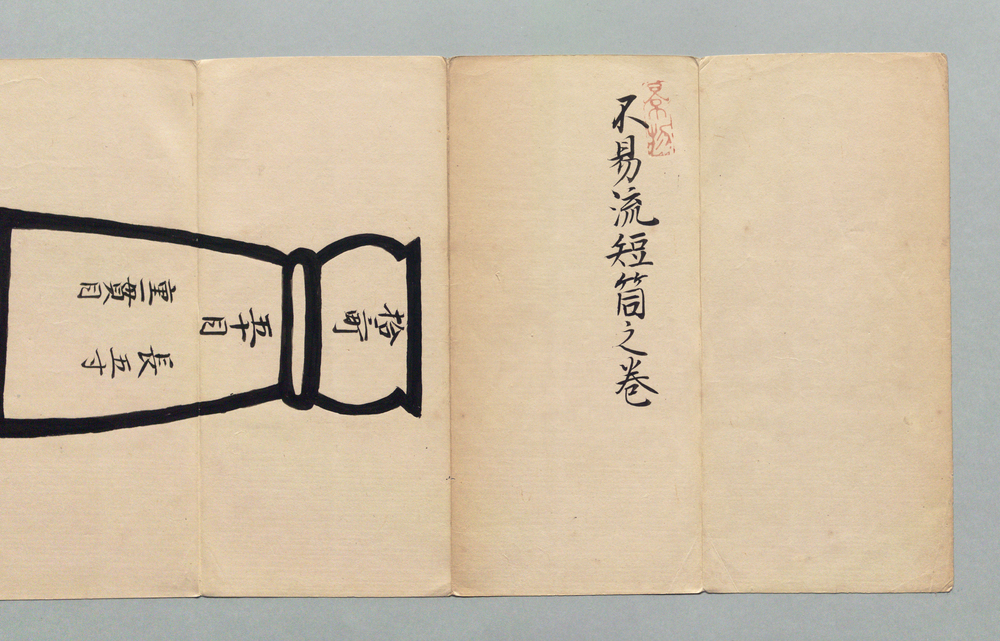 不易流短筒之巻
拾二町
五十目
重一貫目
長五寸